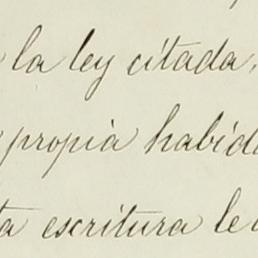 la ley citada,
propia habida
escritura le